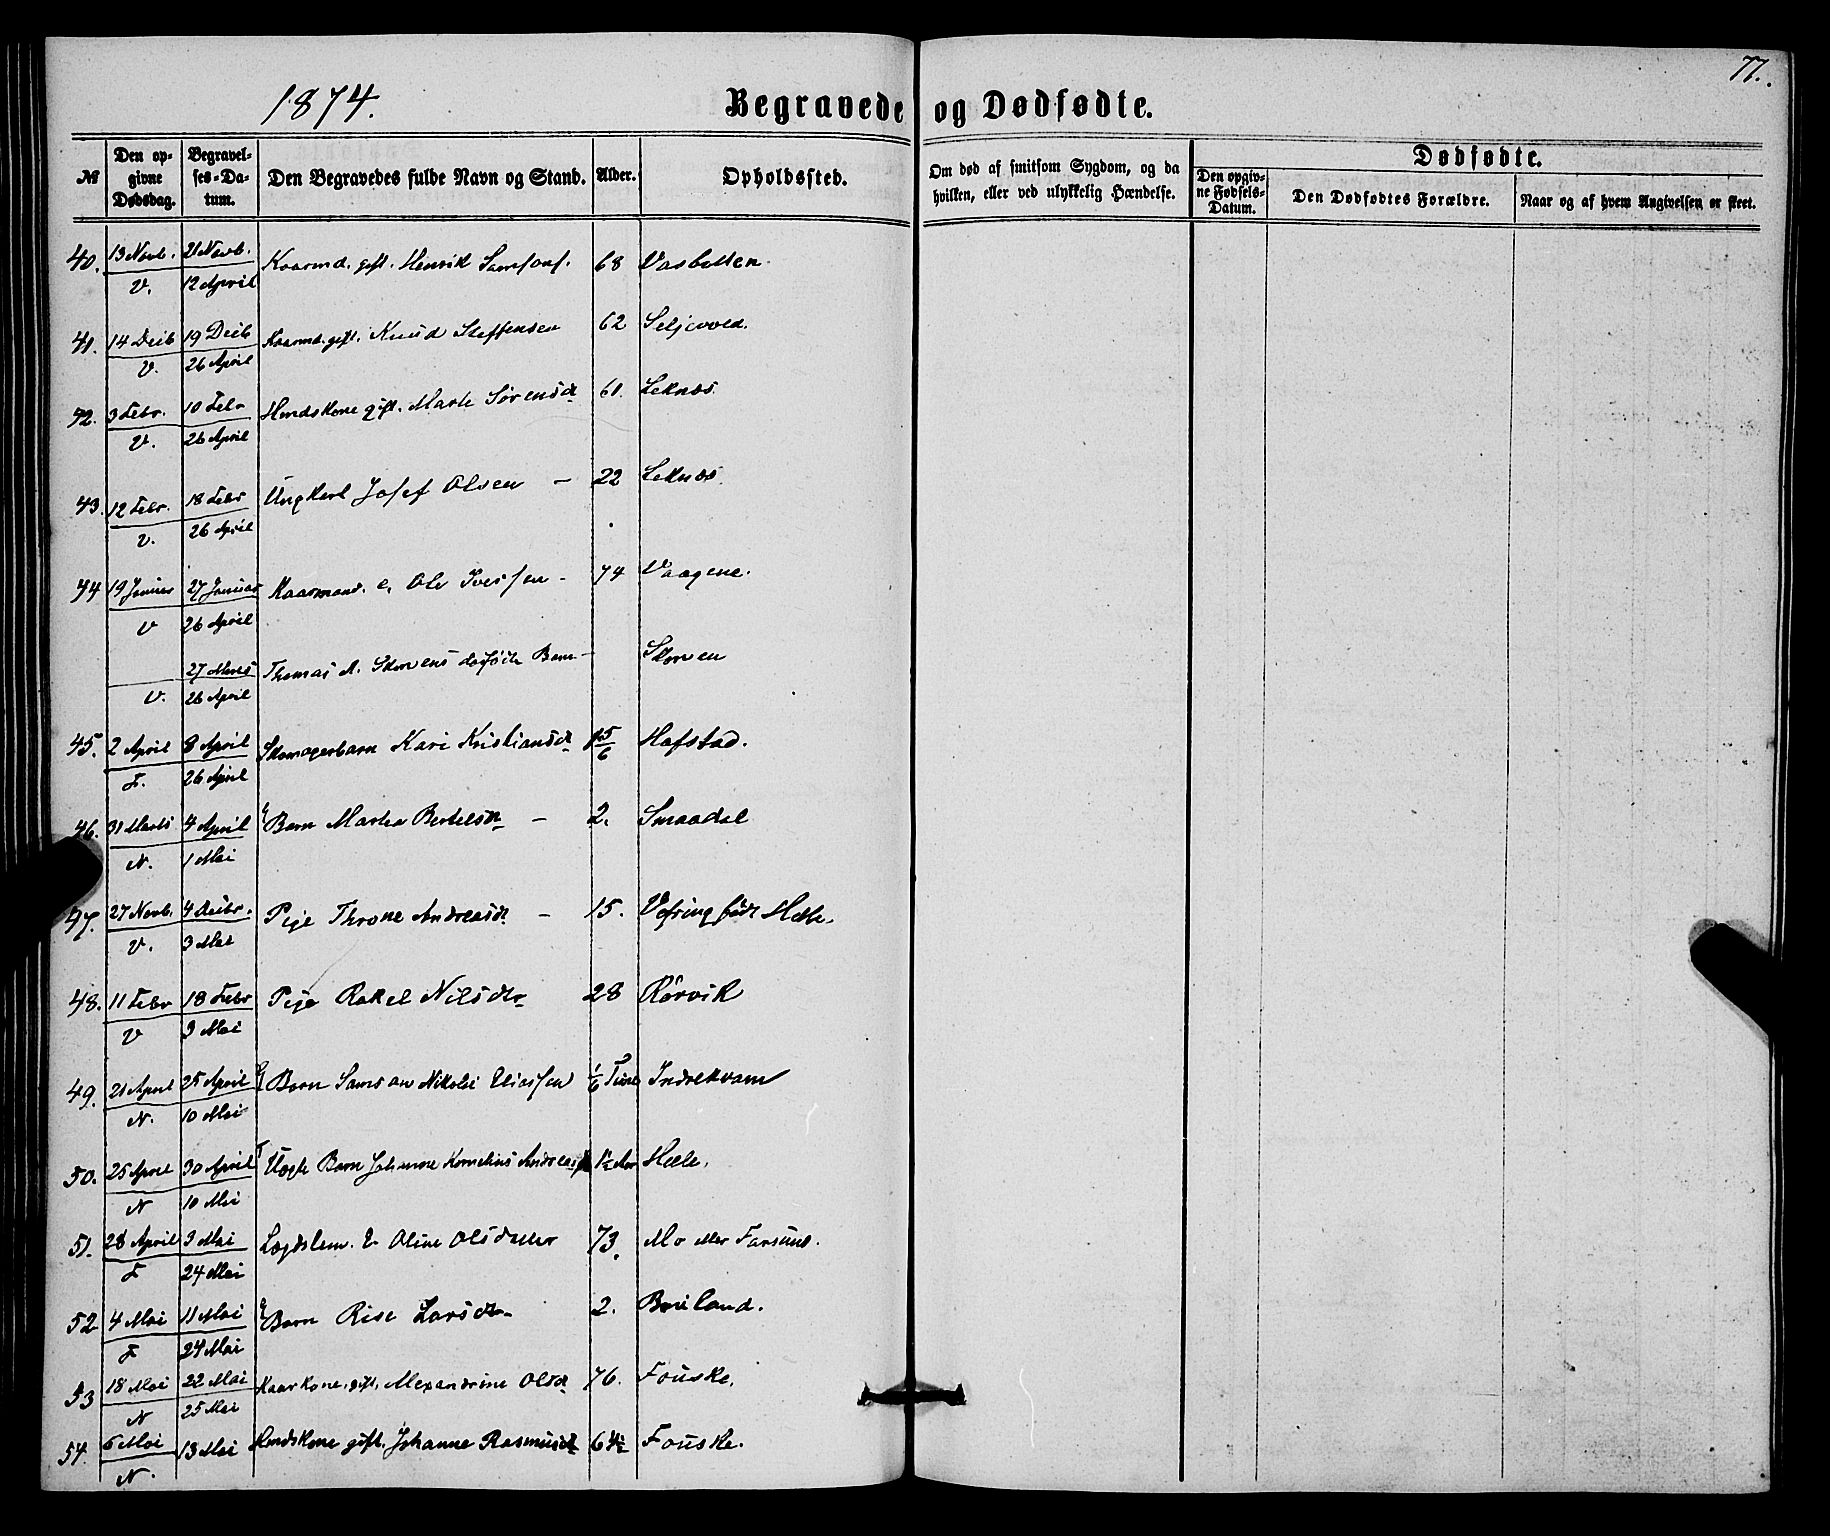 77.
1874.
Begravede og Dødfødte.
№
Den opgivne Dødsdag.
Begravelses-Datum.
Den Begravedes fulde Navn og Stand.
Alder.
Opholdssted.
Om død af smitsom Sygdom, og da hvilken, eller ved ulykkelig Hændelse.
Dødfødte.
Den opgivne Fødsels-Datum.
Den Dødfødtes Forældre.
Naar og af hvem Angivelsen er skeet.
40. 13 Novb. 21 Novb. Kaarmd. gift. Henrik Samsons. 68 Vasbotten.
V. 12 April
41. 14 Decb 19 Decb Kaarmd. gift. Knud Steffensen 62 Seljevold.
V. 26 April
42. 3 Febr. 10 Febr Huuskone gift. Marte Sørensd 61. Leknæs.
V. 26 April
43. 12 Febr. 18 Febr Ungkarl Josef Olsen – 22 Leknæs.
V. 26 April
44 19 Januar 27 Januar Kaarmand e. Ole Iversen – 74 Vaagene.
V 26 April
27 Marts Thomas A. Skorvens dødfødte Barn – Skorven
V. 26 April
45. 2 April 8 April Skomagerbarn Kari Kristiansd 1 5/6 Hafstad.
F. 26 April
46. 31 Marts 4 April Barn Martha Bertelsd – 2. Smaadal
N. 1 Mai
47. 27 Novb. 4 Decbr. Pige Throne Andreasd – 15. Vefring født Hæle.
V. 3 Mai
48. 11 Febr 18 Febr Pige Rakel Nilsdtr 28 Rørvik
V 3 Mai
49. 21 April 25 April Barn Samson Nikolai Eliassen 1/6 Time Indrekvam
N. 10 Mai
50. 25 April 30 April Uægte Barn Johanne Kornelius Andreas 1½ Aar Hæle.
N 10 Mai
51. 28 April 3 Mai Lægdslem. E Oline Olsdatter 73. Mo eller Farsund.
F 24 Mai
52 4 Mai 11 Mai Barn Rise Larsdtr 2. Breiland.
F 24 Mai
53 18 Mai 22 Mai Kaarkone, gift. Alexandrine Olsd 76. Fouske.
N 25 Mai
54. 6 Mai 13 Mai Huuskone gift. Johanne Rasmusd 64½ Fouske.
N.